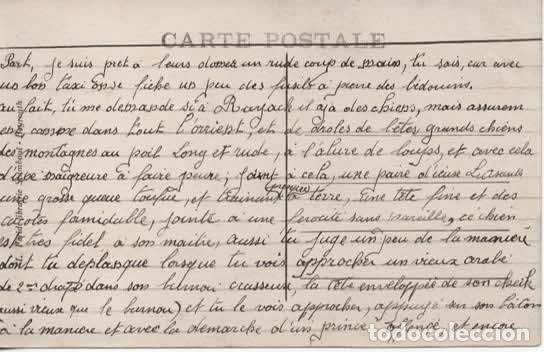 CARTE POSTALE
Part, je suis pret a leurs donner un rude coup de main, tu sais, car avec
un bon taxi on se fiche un peu des fusils a pierre des bedouins.
au fait, tu me demande si a Rayack il a des chiens, mais assurem
ent comme dans tout l'orrient, et de droles de bêtes, grands chiens
des montagnes au poil long et rude, à l'alure de loups, et avec cela
d'une maigreure à faire peure; joint à cela, une paire d'
une grosse queue toufue, et trainant à terre, Une tete fine et des
crocots formidable, jointe à une ferocité sans pareille, ce chien
est tres fidel a son maitre, aussi tu juge un peu de la manière
dont tu deplasque lorsque tu vois approcher un vieux arabe
drapé dans son burnou crasseux, la tete enveloppée de son cheik
aussi vieux que le burnou) et tu le vois approcher, appuyé sur son bâton
à la maniere et avec la demarche d'un prince, et encore
todocoleccion